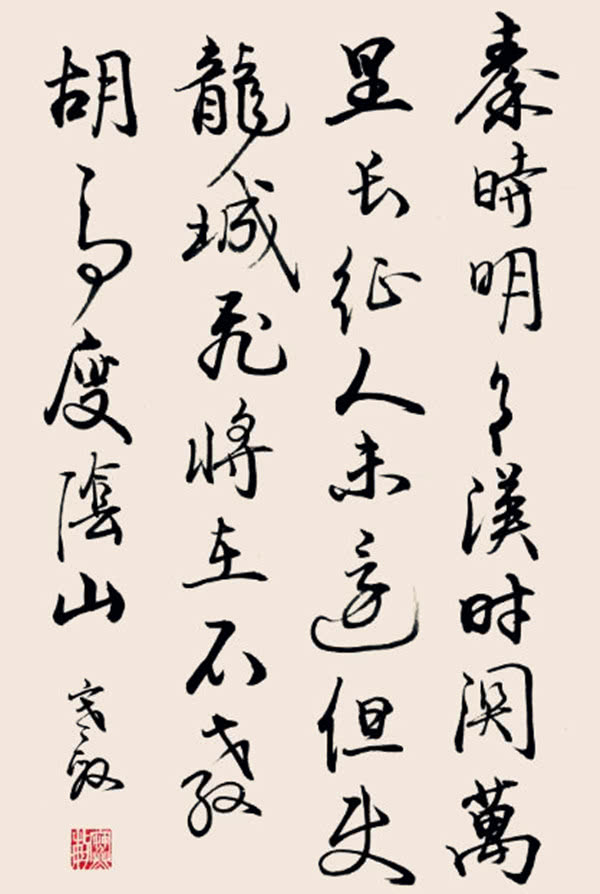 秦時明月漢时関萬
里长征人未還但使
龍城飛將在不教
胡馬度陰山